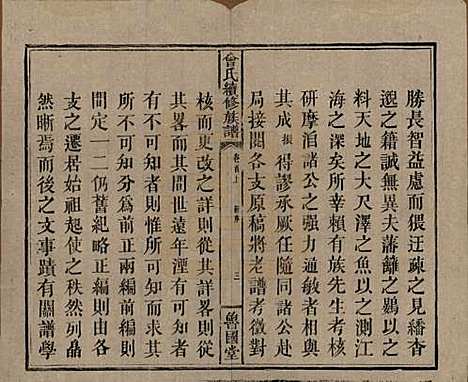 勝長智益慮而猥迂疎之見繙杳
邈之籍誠無異夫藩籬之鷃以之
料天地之大尺澤之魚以之測江
海之深矣所幸賴有族先生考核
研摩洎諸公之强力過敏者相與
其成振得謬承厥任隨同諸公赴
局接閱各支原稿將老譜考徵對
曾氏續修族譜
卷首上
新序
三
魯國堂
核而更改之詳則從其詳畧則從
其畧而其間世遠年湮有可知者
有不可知者可知而求其
所不可知分為前正兩編前則由
間定一二仍舊紀略正編則由各
支之遷居始祖起使之秩然列曡
然晣焉而後之文事蹟有關譜學